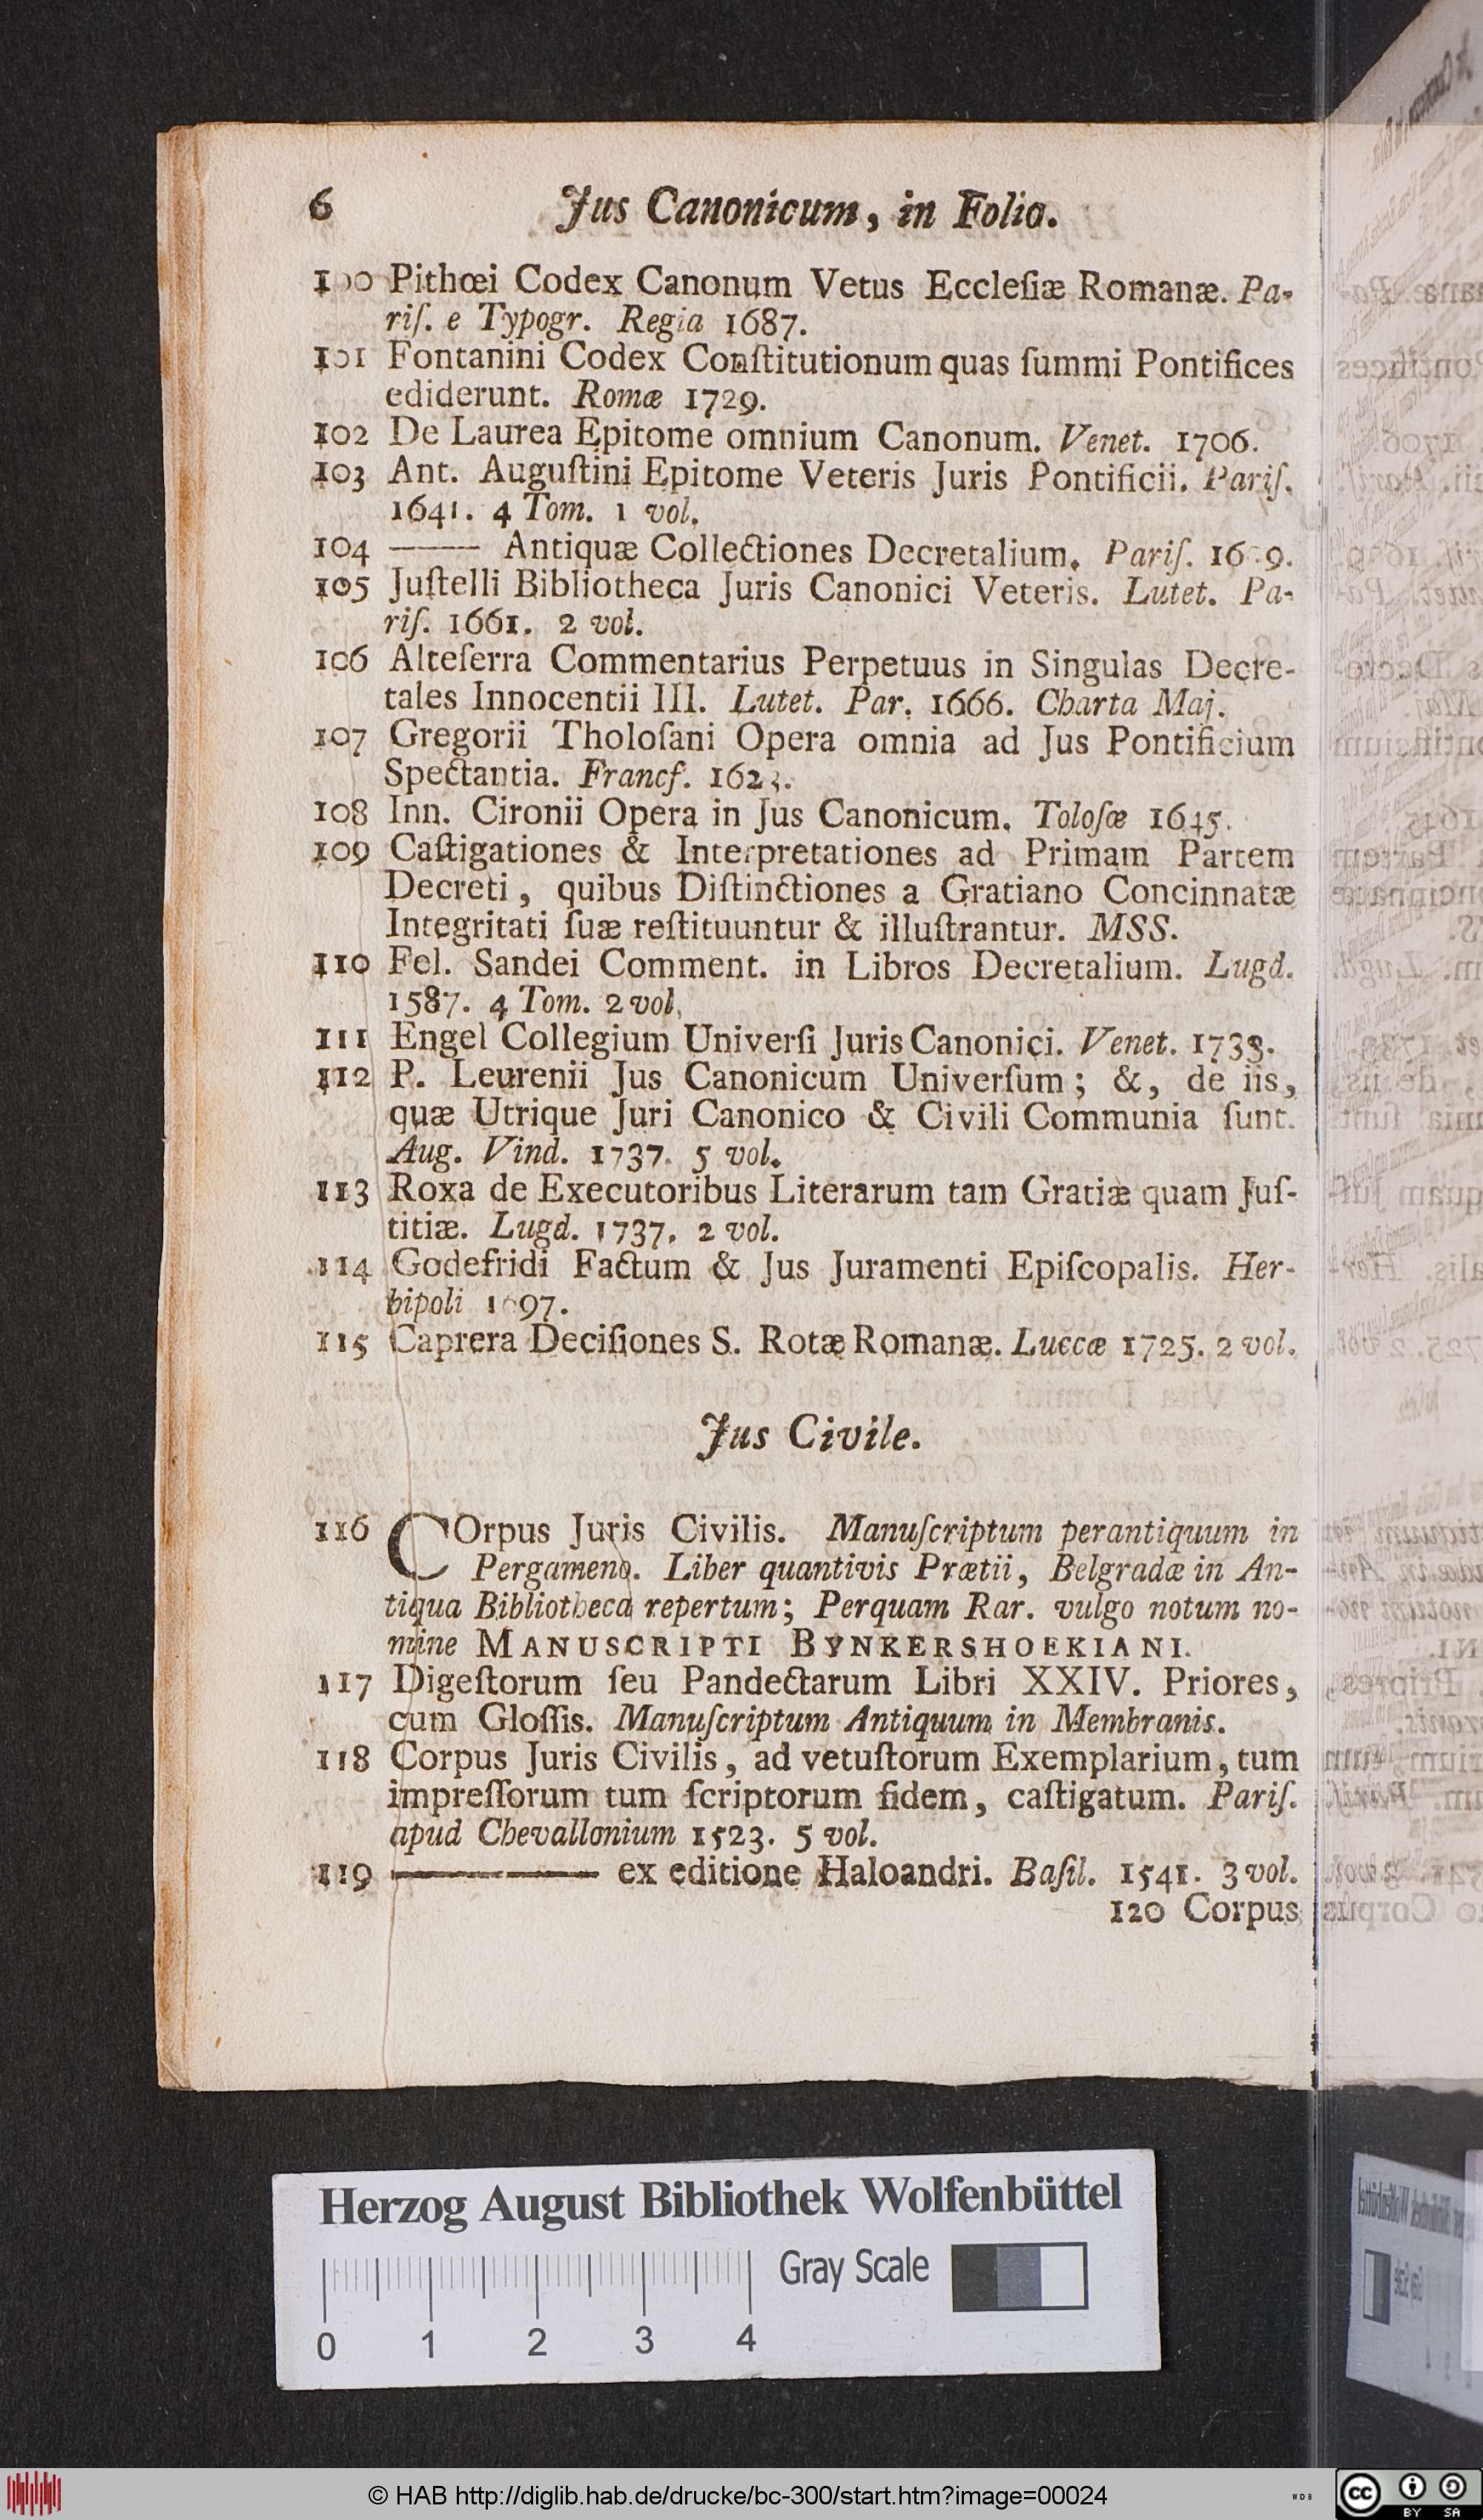 6 Jus Canonicum, in Folio.
100 Pithœi Codex Canonum Vetus Eccleſiæ Romanæ. Pa-
riſ. e Typogr. Regia 1687.
101 Fontanini Codex Conſtitutionum quas ſummi Pontifices
ediderunt. Romæ 1729.
102 De Laurea Epitome omnium Canonum. Venet. 1706.
103 Ant. Auguſtini Epitome Veteris Juris Pontificii. Pariſ.
1641. 4 Tom. 1 vol.
104 —— Antiquæ Collectiones Decretalium. Pariſ.
105 Juſtelli Bibliotheca Juris Canonici Veteris. Lutet. Pa-
riſ. 1661. 2 vol.
106 Alteſerra Commentarius Perpetuus in Singulas Decre-
tales Innocentii III. Lutet. Par. 1666. Charta Maj.
107 Gregorii Tholoſani Opera omnia ad Jus Pontificium
Spectantia. Francf. 1623.
108 Inn. Cironii Opera in Jus Canonicum. Toloſæ 1645.
109 Caſtigationes & Interpretationes ad Primam Partem
Decreti, quibus Diſtinctiones a Gratiano Concinnatæ
Integritati ſuæ reſtituuntur & illuſtrantur. MSS.
110 Fel. Sandei Comment. in Libros Decretalium. Lugd.
1587. 4 Tom. 2 vol.
111 Engel Collegium Univerſi Juris Canonici. Venet.
112 P. Leurenii Jus Canonicum Univerſum; &, de iis,
quæ Utrique Juri Canonico & Civili Communia ſunt.
Aug. Vind. 1737. 5 vol.
113 Roxa de Executoribus Literarum tam Gratiæ quam Juſ-
titiæ. Lugd. 1737. 2 vol.
114 Godefridi Factum & Jus Juramenti Epiſcopalis. Her-
bipoli 1697.
115 Caprera Deciſiones S. Rotæ Romanæ. Luccæ 1725. 2 vol.
Jus Civile.
116 COrpus Juris Civilis. Manuſcriptum perantiquum in
Pergameno. Liber quantivis Prætii, Belgradæ in An-
tiqua Bibliotheca repertum; Perquam Rar. vulgo notum no-
mine MANUSCRIPTI BYNKERSHOEKIANI.
117 Digeſtorum ſeu Pandectarum Libri XXIV. Priores,
cum Gloſſis. Manuſcriptum Antiquum in Membranis.
118 Corpus Juris Civilis, ad vetuſtorum Exemplarium, tum
impreſſorum tum ſcriptorum fidem, caſtigatum. Pariſ.
apud Chevallonium 1523. 5 vol.
119 ——— ex editione Haloandri. Baſil. 1541. 3 vol.
120 Corpus
Herzog August Bibliothek Wolfenbüttel
Gray Scale
0 1 2 3 4
© HAB http://diglib.hab.de/drucke/bc-300/start.htm?image=00024
WDB
cc BY SA